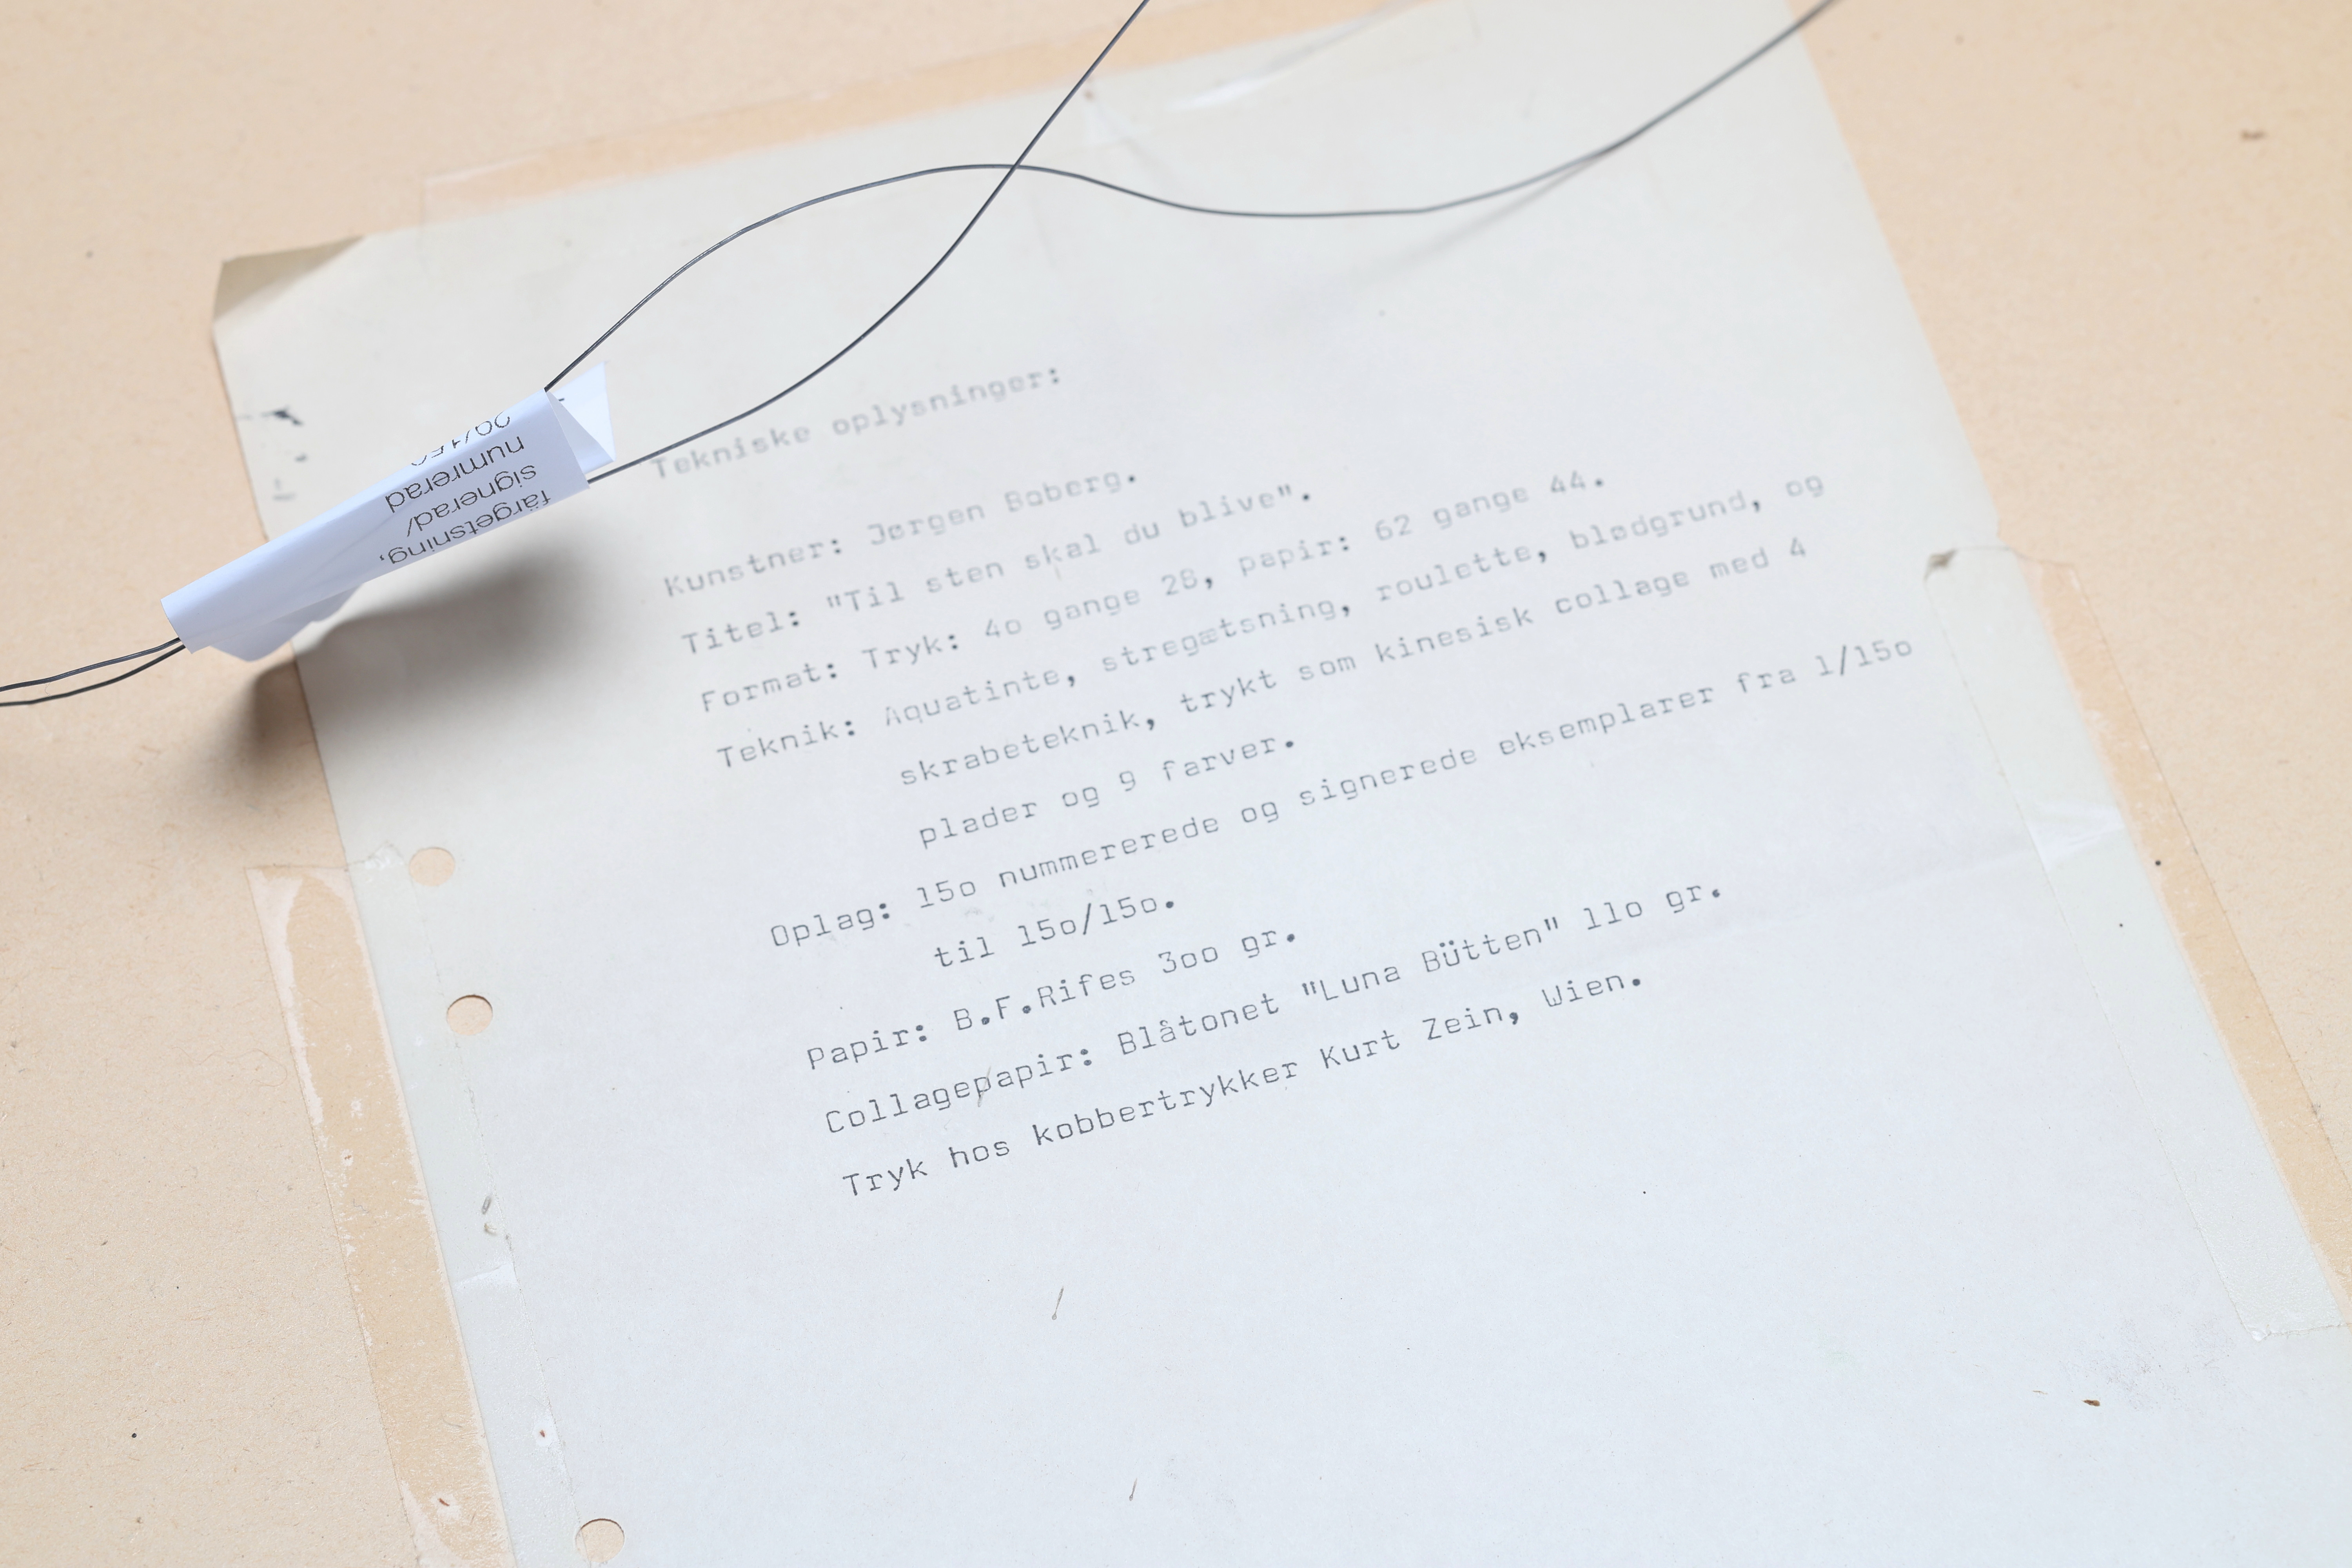 Tekniske oplysninger:
Kunstner: Jørgen Boberg.
Titel: "Til sten skal du blive".
Format: Tryk: 4o gange 28, papir: 62 gange 44.
Teknik: Aquatinte, stregætsning, roulette, blødgrund, og
skrabeteknik, trykt som kinesisk collage med 4
plader og 9 farver.
Oplag: 15o nummererede og signerede eksemplarer fra 1/15o
til 15o/15o.
Papir: B.F.Rifes 3oo gr.
Collagepapir: Blåtonet "Luna Bütten" llo gr.
Tryk hos kobbertrykker Kurt Zein, Wien.
färgetsning,
signerad/
numrerad